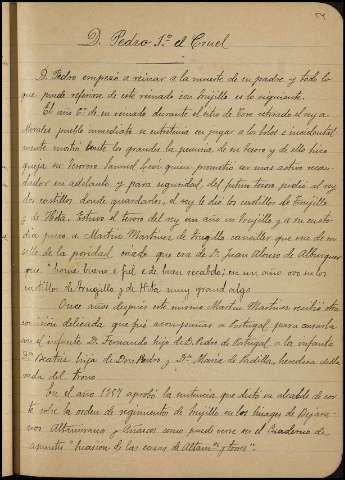 D. Pedro 1º el Cruel
D. Pedro empezó a reinar a la muerte de su padre y todo lo
que puede referirse de este reinado con Trujillo es lo siguiente.
El año 6º de su reinado durante el sitio de Toro retirado el rey a
Morales pueblo inmediato se entretenia en jugar a los bolos e incidental
mente mostró los grandes la penuria de su tesoro y de ello hizo
queja su tesorero Samuel Levi quien prometió ser mas activo recau
dador en adelante y para seguridad del futuro tesoro, pedia al rey
dos castillos donde guardarlos, el rey le dió los castillos de Trujillo
y de Hita. Estuvo el tesoro del rey un año en Trujillo y a su custo
dia puso a Martin Martinez de Trugillo canciller que era de su
sello de la poridad, criado que era de D. Juan Alonso de Alburquer
que "home bueno e fiel e de buen recabdo; en un año ovo en los
castillos de Trugillo y de Hita muy grand algo
Once años después este mismo Martin Martinez recibió otra
comisión delicada que fué acompañar a Portugal, para casarla
con el infante D. Fernando hijo de D. Pedro de Portugal a la infanta
Dª Beatriz hija de Don Pedro y Dª Maria de Padilla, heredera decla
rada del trono.
En el año 1357 aprobó la sentencia que dictó su alcalde de cor
te sobre la orden de regimientos de Trujillo en los linages de Bejara
nos Altamirano y Añascos como puede verse en el Cuaderno de
apuntes "Sucesion de las casas de Altamnos. y torres".